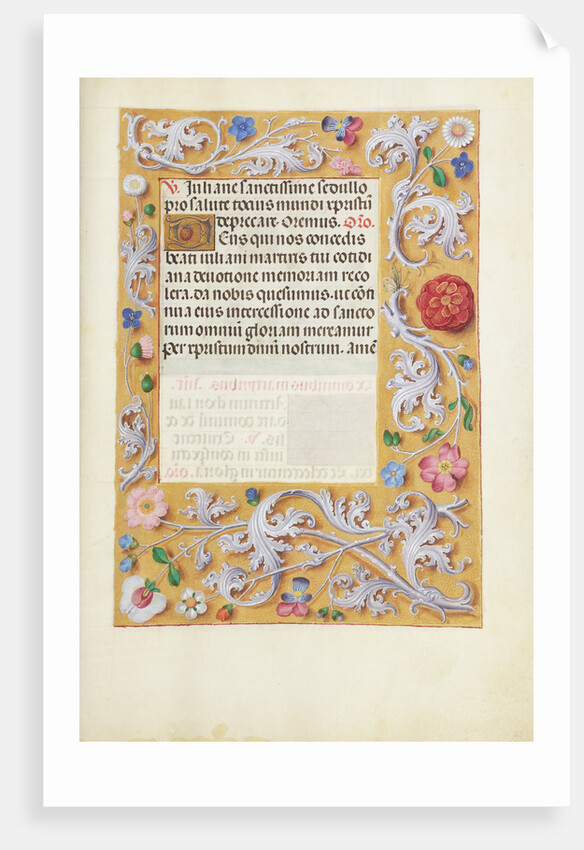 V. Iuliane sanctissime sedullo
pro salute tocius mundi xpristū
deprecare. Oremus. Oro.
Eus qui nos concedis
beati iuliani martiris tui cotidi
ana deuotione memoriam reco
lere. da nobis quesumus. ut cōti
nua eius intercessione ad sancto
rum omniū gloriam mereamur
Per xpristum dnim nostrum. amē